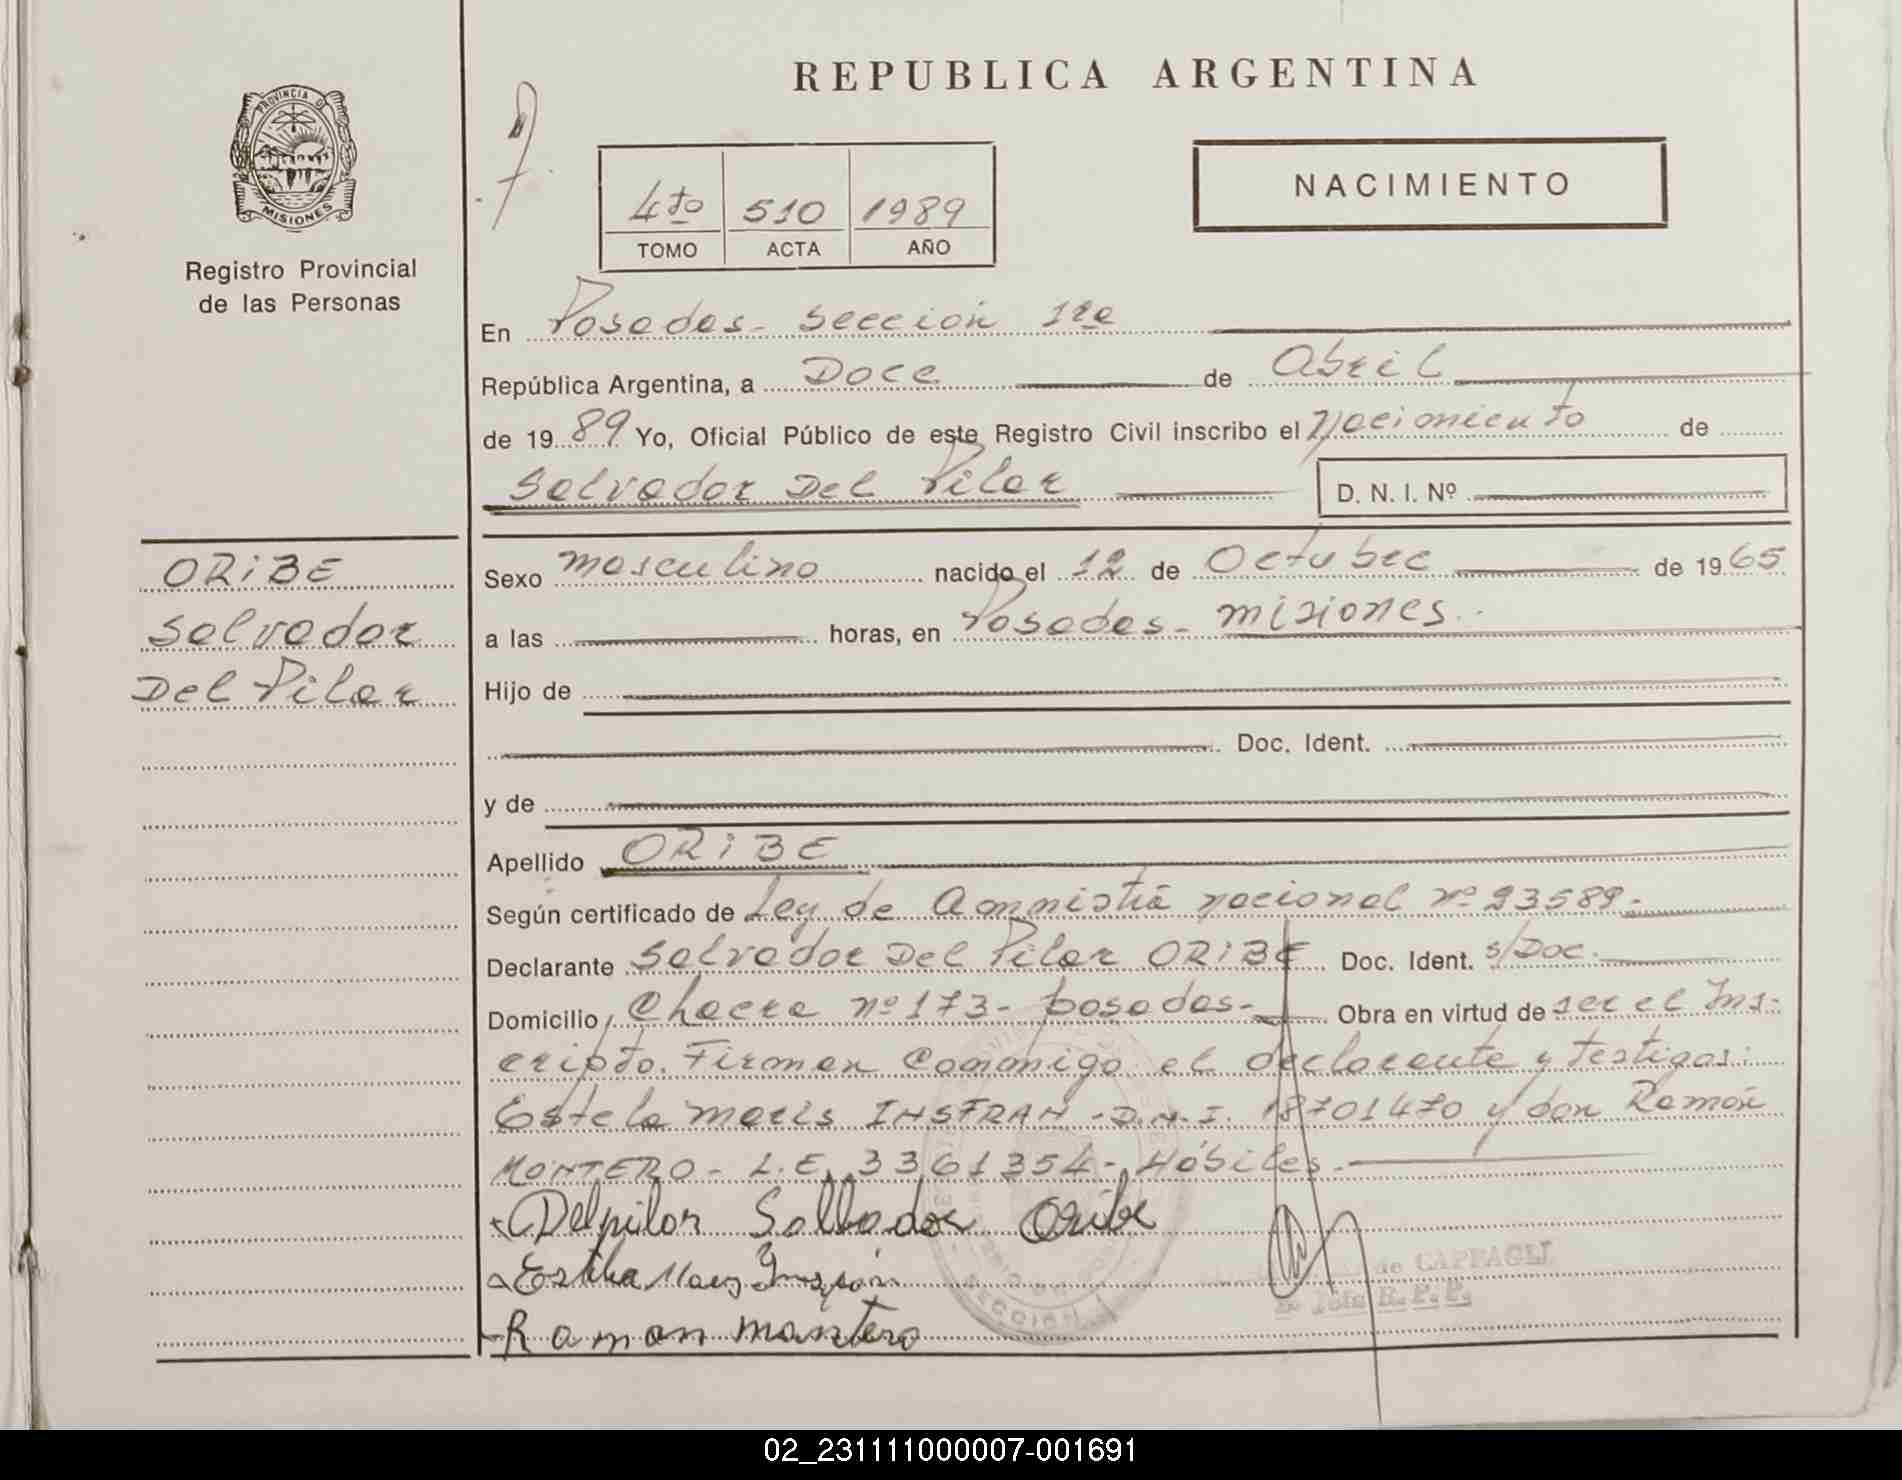 REPUBLICA ARGENTINA
PROVINCIA D
MISIONES
Registro Provincial
de las Personas
4to 510 1989
TOMO ACTA AÑO
NACIMIENTO
En Posadas - Sección 1ra
República Argentina, a Doce de Abril
de 1989 Yo, Oficial Público de este Registro Civil inscribo el Nacimiento de
Salvador Del Pilar D. N. I. Nº
ORIBE
Salvador
Del Pilar
Sexo masculino nacido el 12 de Octubre de 1965
a las horas, en Posadas - misiones.
Hijo de
Doc. Ident.
y de
Apellido ORIBE
Según certificado de Ley de Amnistía nacional nº 23589.-
Declarante Salvador Del Pilar ORIBE Doc. Ident. s/Doc.
Domicilio Chacra nº 173 - posadas - Obra en virtud de ser el Ins-
cripto. Firman Conmigo el declarante y testigos:
Estela Maris INSFRAN - D.N.I. 18701470 y don Ramón
MONTERO - L.E. 3361354 - Hábiles.
Delpilar Salbador Oribe
Ramon montero
de CAPFAGLI
R. P. P.
SECCION 1
02_231111000007-001691